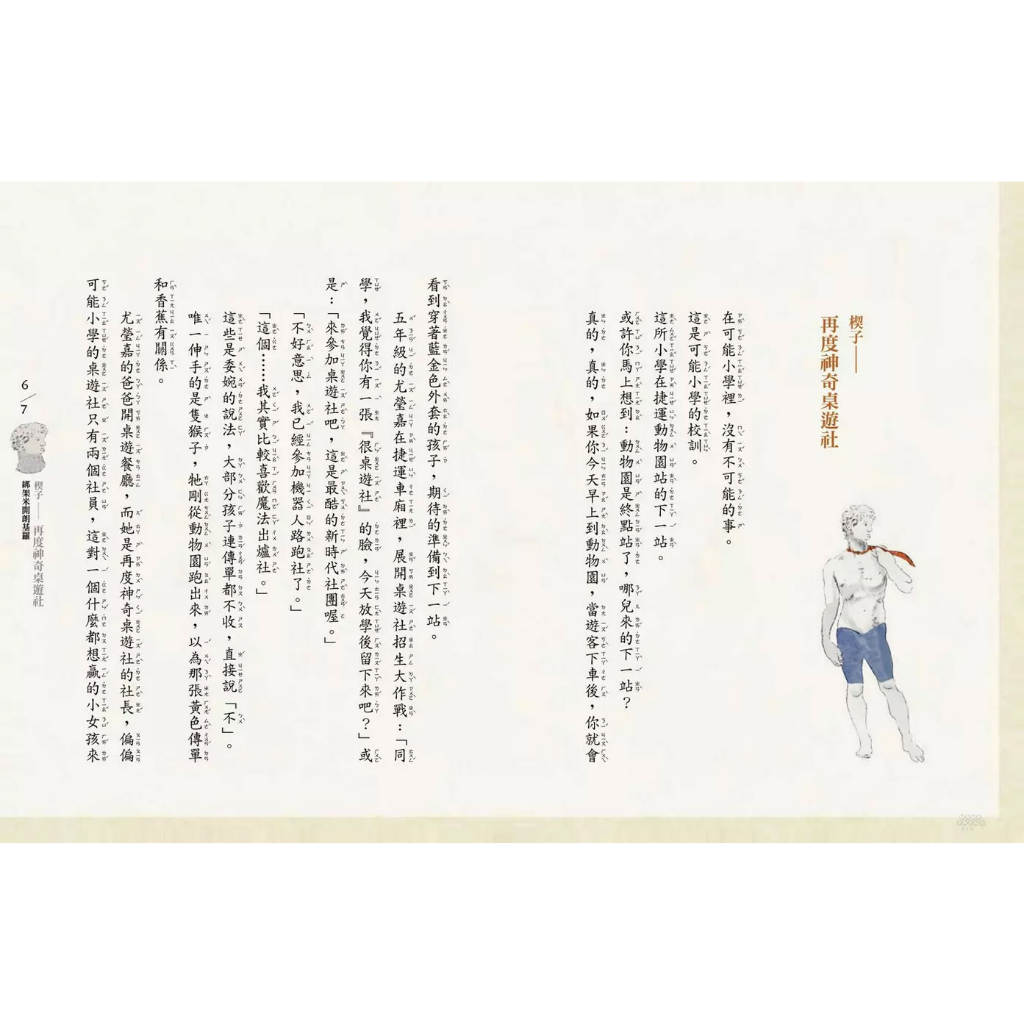 楔子——
再度神奇桌遊社
在可能小學裡，沒有不可能的事。
這是可能小學的校訓。
這所小學在捷運動物園站的下一站。
或許你馬上想到：動物園是終點站了，哪兒來的下一站？
真的，真的，如果你今天早上到動物園，當遊客下車後，你就會
看到穿著藍金色外套的孩子，期待的準備到下一站。
五年級的尤瑩嘉在捷運車廂裡，展開桌遊社招生大作戰：「同
學，我覺得你有一張『很桌遊社』的臉，今天放學後留下來吧？」或
是：「來參加桌遊社吧，這是最酷的新時代社團喔。」
「不好意思，我已經參加機器人路跑社了。」
「這個……我其實比較喜歡魔法出爐社。」
這些是委婉的說法，大部分孩子連傳單都不收，直接說「不」。
唯一伸手的是隻猴子，牠剛從動物園跑出來，以為那張黃色傳單
和香蕉有關係。
尤瑩嘉的爸爸開桌遊餐廳，而她是再度神奇桌遊社的社長，偏偏
可能小學的桌遊社只有兩個社員，這對一個什麼都想贏的小女孩來
6/7
楔子——再度神奇桌遊社
綁架米開朗基羅